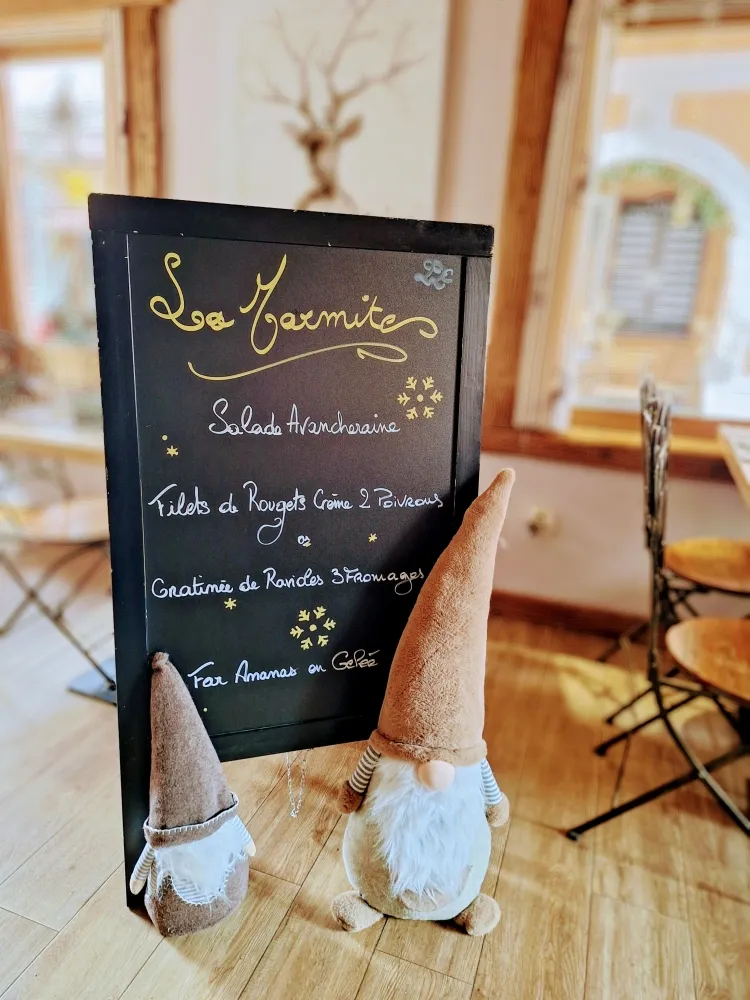 La Marmite
Salade Avancheraine
Filets de Rougets Crème 2 Poivrons
ou
Gratinée de Ravioles 3 Fromages
Far Ananas en Gelée